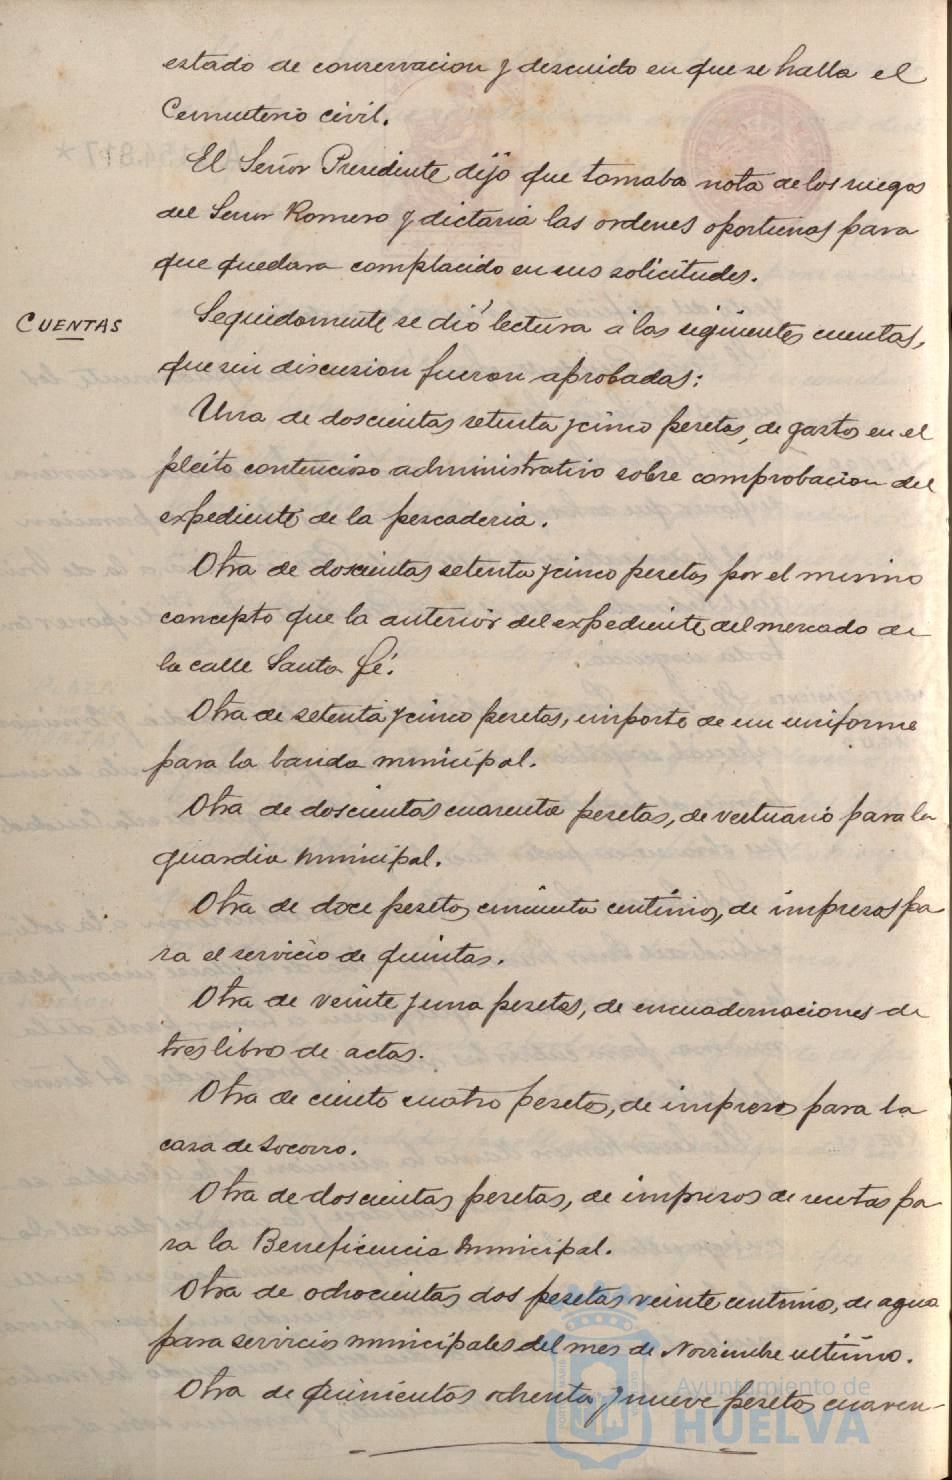 estado de conservacion y descuido en que se halla el
Cementerio civil.
El Señor Presidente dijo que tomaba nota de los ruegos
del Señor Romero y dictaria las ordenes oportunas para
que quedara complacido en sus solicitudes.
CUENTAS
Seguidamente se dió lectura á las siguientes cuentas,
que sin discusion fueron aprobadas:
Una de doscientas setenta y cinco pesetas, de gastos en el
pleito contencioso administrativo sobre comprobacion del
expediente de la pescaderia.
Otra de doscientas setenta y cinco pesetas por el mismo
concepto que la anterior del expediente del mercado de
la calle Santa Fé.
Otra de setenta y cinco pesetas, importe de un uniforme
para la banda municipal.
Otra de doscientas cuarenta pesetas, de vestuario para la
guardia municipal.
Otra de doce pesetas cincuenta centimos, de impresos pa-
ra el servicio de quintas.
Otra de veinte y una pesetas, de encuadernaciones de
tres libro de actas.
Otra de ciento cuatro pesetas, de impresos para la
casa de socorro.
Otra de doscientas pesetas, de impresos de recetas pa-
ra la Beneficencia municipal.
Otra de ochocientas dos pesetas veinte centimo, de agua
para servicios municipales del mes de Noviembre ultimo.
Otra de quinientas ochenta y nueve pesetas cuaren-
Ayuntamiento de
HUELVA